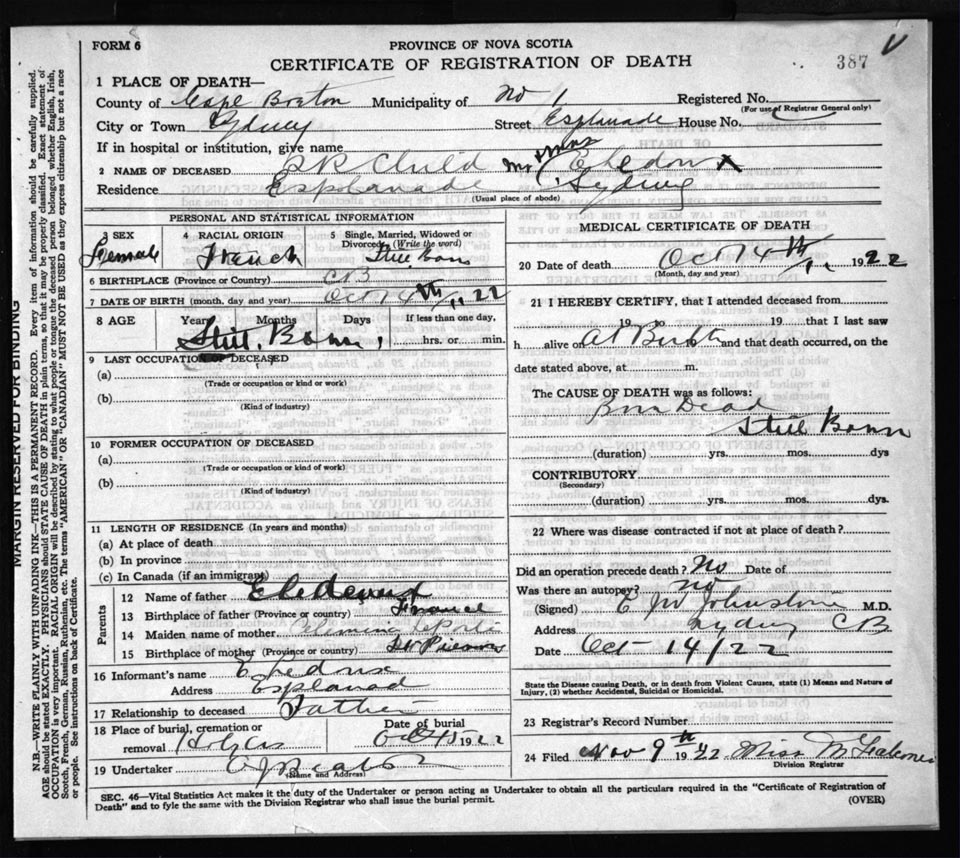 FORM 6
PROVINCE OF NOVA SCOTIA
CERTIFICATE OF REGISTRATION OF DEATH
387
1 PLACE OF DEATH—
County of Cape Breton Municipality of No 1 Registered No.
(For use of Registrar General only)
City or Town Sydney Street Esplanade House No.
If in hospital or institution, give name
2 NAME OF DECEASED Child Mr & Mrs
Residence Esplanade Sydney
(Usual place of abode)
PERSONAL AND STATISTICAL INFORMATION
3 SEX 4 RACIAL ORIGIN 5 Single, Married, Widowed or Divorced (Write the word)
Female French Still Born
6 BIRTHPLACE (Province or Country) CB
7 DATE OF BIRTH (month, day and year) Oct 14th 1922
8 AGE Years Months Days If less than one day,
Still Born hrs. or min.
9 LAST OCCUPATION OF DECEASED
(a)
(Trade or occupation or kind or work)
(b)
(Kind of industry)
10 FORMER OCCUPATION OF DECEASED
(a)
(Trade or occupation or kind of work)
(b)
(Kind of industry)
11 LENGTH OF RESIDENCE (In years and months)
(a) At place of death
(b) In province
(c) In Canada (if an immigrant)
Parents
12 Name of father
13 Birthplace of father (Province or country) France
14 Maiden name of mother
15 Birthplace of mother (Province or country) St
16 Informant's name
Address Esplanad
17 Relationship to deceased Father
18 Place of burial, cremation or removal Date of burial
Oct 15 1922
19 Undertaker
(Name and Address)
MEDICAL CERTIFICATE OF DEATH
20 Date of death Oct 14th 1922
(Month, day and year)
21 I HEREBY CERTIFY, that I attended deceased from
19 to 19 that I last saw
h alive on At Birth and that death occurred, on the
date stated above, at m.
The CAUSE OF DEATH was as follows:
Born Dead
Still Born
(duration) yrs. mos. dys
CONTRIBUTORY
(Secondary)
(duration) yrs. mos. dys.
22 Where was disease contracted if not at place of death?
Did an operation precede death? No Date of
Was there an autopsy? no
(Signed) E M Johnstone M.D.
Address Sydney CB
Date Oct 14/22
State the Disease causing Death, or in death from Violent Causes, state (1) Means and Nature of
Injury, (2) whether Accidental, Suicidal or Homicidal.
23 Registrar's Record Number
24 Filed Nov 9th 1922 Miss
Division Registrar
SEC. 46—Vital Statistics Act makes it the duty of the Undertaker or person acting as Undertaker to obtain all the particulars required in the "Certificate of Registration of
Death" and to fyle the same with the Division Registrar who shall issue the burial permit. (OVER)
MARGIN RESERVED FOR BINDING
N.B.—WRITE PLAINLY WITH UNFADING INK—THIS IS A PERMANENT RECORD. Every item of information should be carefully supplied.
AGE should be stated EXACTLY. PHYSICIANS should STATE CAUSE OF DEATH in plain terms, so that it may be properly classified. Exact statement of
OCCUPATION is very important. RACIAL ORIGIN will be described by stating to what people or tongue the deceased person belonged whether English, Irish,
Scotch, French, German, Russian, Ruthenian, etc. The terms "AMERICAN" or "CANADIAN" MUST NOT BE USED as they express citizenship but not a race
or people. See instructions on back of Certificate.